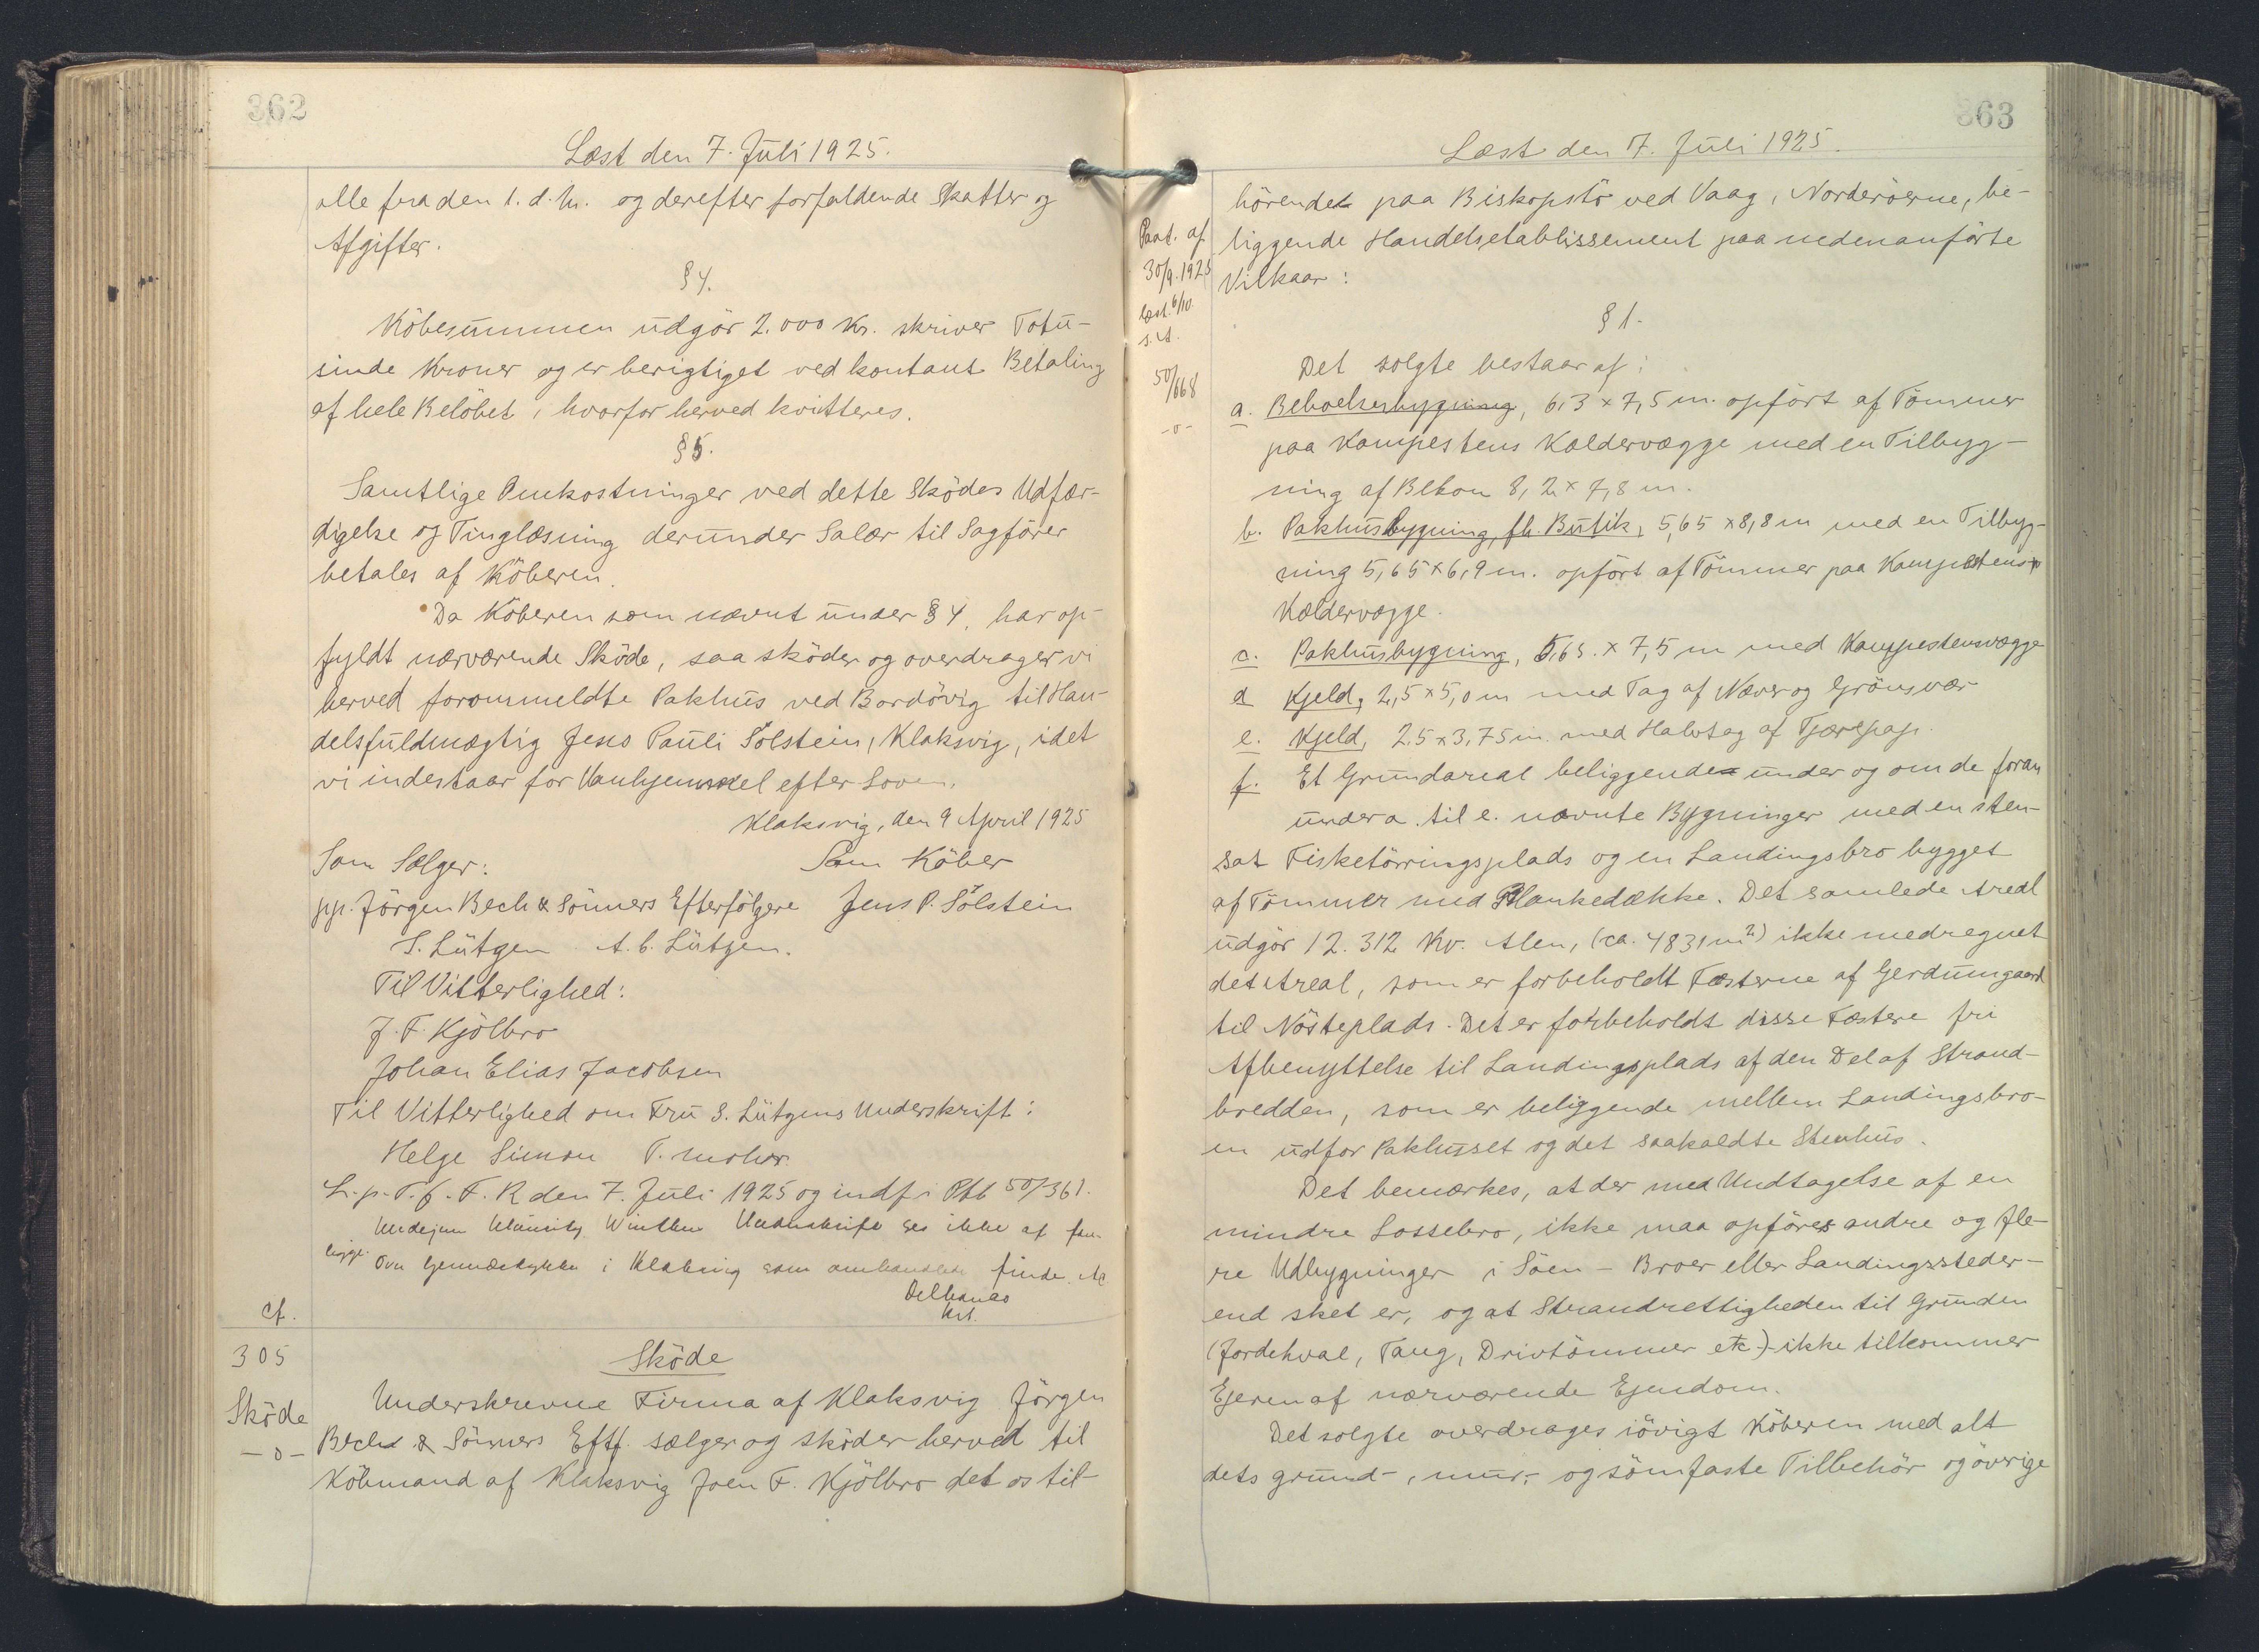 362
Læst den 7. Juli 1925.
alle fra den 1. d. M. og derefter forfaldende Skatter og
Afgifter.
§ 4.
Köbesummen udgör 2.000 Kr. skriver Totu-
sinde Kroner og er berigtiget ved kontant Betaling
af hele Belöbet, hvorfor herved kvitteres.
§ 5.
Samtlige Omkostninger ved dette Sködes Udfær-
digelse og Tinglæsning derunder Salær til Sagförer
betales af Köberen.
Da Köberen som nævnt under § 4, har op-
fyldt nærværende Sköde, saa sköder og overdrager vi
herved forommeldte Pakhus ved Bordövig til Han-
delsfuldmægtig Jens Pauli Sólstein, Klaksvig, idet
vi indestaar for Vanhjemmel efter Loven.
Klaksvig, den 9 April 1925
Som Sælger: Som Köber
pp. Jörgen Bech & Sönners Efterfölgere Jens P. Sólstein
S. Lützen A. C. Lützen.
Til Vitterlighed:
J. F. Kjölbro
Johan Elias Jacobsen
Til Vitterlighed om Fru S. Lützens Underskrift:
Helge Simon T. Mohr
L. p. T. f. F. R den 7. Juli 1925 og indf. i Ptb 50/361.
Winther Underskrift ses ikke at fore-
ligge. Over i Klaksvig som finde
cf.
305
Sköde
Sköde
-o-
Underskrevne Firma af Klaksvig Jörgen
Bech & Sönners Eftf. sælger og sköder herved til
Köbmand af Klaksvig Joen F. Kjölbro det os til-
363
Læst den 7. Juli 1925.
hörende paa Biskopstö ved Vaag, Norderöerne, be-
liggende Handelsetablissement paa nedenanförte
Vilkaar:
Paat. af
30/9.1925
læst 6/10.
s. A.
50/668
-o-
§ 1.
Det solgte bestaar af:
a. Beboelsesbygning, 6,3 x 7,5 m. opfört af Tömmer
paa Kampestens Kældervægge med en Tilbyg-
ning af Beton 8,2 x 7,8 m.
b. Pakhusbygning, fh. Butik, 5,65 x 8,8 m med en Tilbyg-
ning 5,65 x 6,9 m. opfört af Tömmer paa Kampestens
Kældervægge.
c. Pakhusbygning, 5,65. x 7,5 m med Kampestensvægge
d Kjeld, 2,5 x 5,0 m med Tag af Næver og Grönsvær
e. Kjeld, 2,5 x 3,75 m. med Halvtag af Tjærepap.
f. Et Grundareal beliggende under og om de foran
under a. til e. nævnte Bygninger med en sten-
sat Fisketörringsplads og en Landingsbro bygget
af Tömmer med Plankedække. Det samlede Areal
udgör 12.312 Kv. Alen, (ca. 4831 m²) ikke medregnet
det Areal, som er forbeholdt Fæsterne af Gerdumgaard
til Nösteplads. Det er forbeholdt disse Fæstere fri
Afbenyttelse til Landingsplads af den Del af Strand-
bredden, som er beliggende mellem Landingsbro-
en udfor Pakhuset og det saakaldte Stenhus.
Det bemærkes, at der med Undtagelse af en
mindre Lossebro, ikke maa opföres andre og fle-
re Udbygninger i Söen - Broer eller Landingssteder -
end sket er, og at Strandrettigheden til Grunden
(Jordehval, Tang, Drivtömmer etc.) ikke tilkommer
Ejeren af nærværende Ejendom.
Det solgte overdrages iövigt Köberen med alt
dets grund-, mur,- og sömfaste Tilbehör og övrige